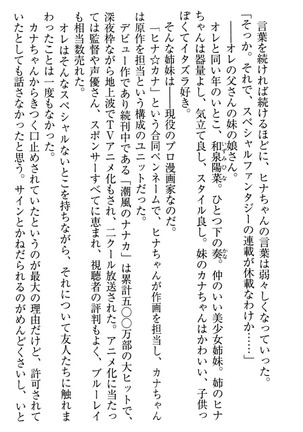 言葉を続ければ続けるほどに、ヒナちゃんの言葉は弱々しくなっていった。
「そっか。それで、スペシャルファンタジーの連載が休載なわけか……」
――オレの父さんの妹の娘さん。
オレと同い年のいとこ、和泉陽菜。ひとつ下の奏。仲のいい美少女姉妹。姉のヒナ
ちゃんは器量よし、気立て良し、スタイル良し。妹のカナちゃんはかわいい、子供っ
ぽくてイタズラ好き。
そんな姉妹は――現役のプロ漫画家なのだ。
「ヒナ☆カナ」という合同ペンネームで、ヒナちゃんが作画を担当し、カナちゃん
は原作を担当という構成のユニットだった。
デビュー作であり続刊中である「潮風のナナカ」は累計五〇〇万部の大ヒットで、
深夜枠ながら地上波でTVアニメ化もされ、二クール放送された。アニメ化に当たっ
ては監督や声優さん、スポンサーすべてに恵まれ、視聴者の評判もよく、ブルーレイ
も相当数売れた。
オレはそんなスペシャルないとこを持ちながら、それについて友人たちに触れま
わったことは一度もなかった。
カナちゃんからきつく口止めされていたというのが最大の理由だけど、許可されて
いたとしても話さなかったと思う。サインとかねだられるのがめんどくさいし、いと